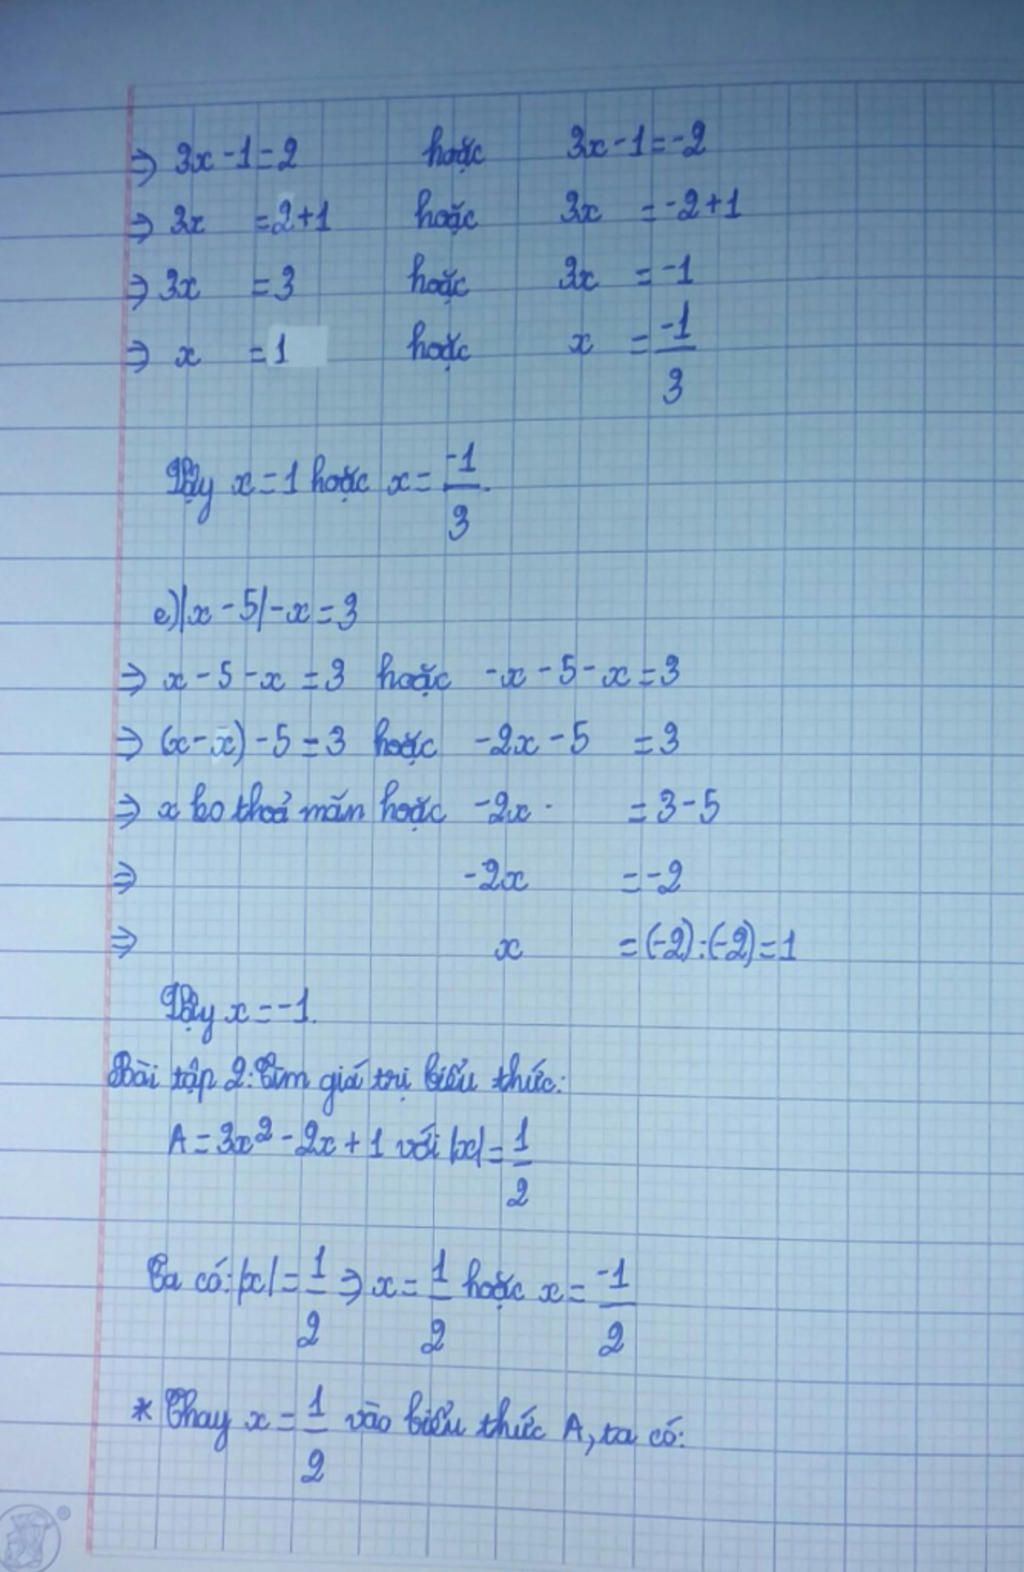 ⇒ 3x - 1 = 2 hoặc 3x - 1 = -2
⇒ 3x = 2 + 1 hoặc 3x = -2 + 1
⇒ 3x = 3 hoặc 3x = -1
⇒ x = 1 hoặc x = -1/3
Vậy x = 1 hoặc x = -1/3.
e) |x - 5| - x = 3
⇒ x - 5 - x = 3 hoặc -x - 5 - x = 3
⇒ (x - x) - 5 = 3 hoặc -2x - 5 = 3
⇒ x ko thoả mãn hoặc -2x = 3 - 5
⇒ -2x = -2
⇒ x = (-2) : (-2) = 1
Vậy x = -1.
Bài tập 2: Tìm giá trị biểu thức:
A = 3x² - 2x + 1 với |x| = 1/2
Ta có: |x| = 1/2 ⇒ x = 1/2 hoặc x = -1/2
* Thay x = 1/2 vào biểu thức A, ta có: